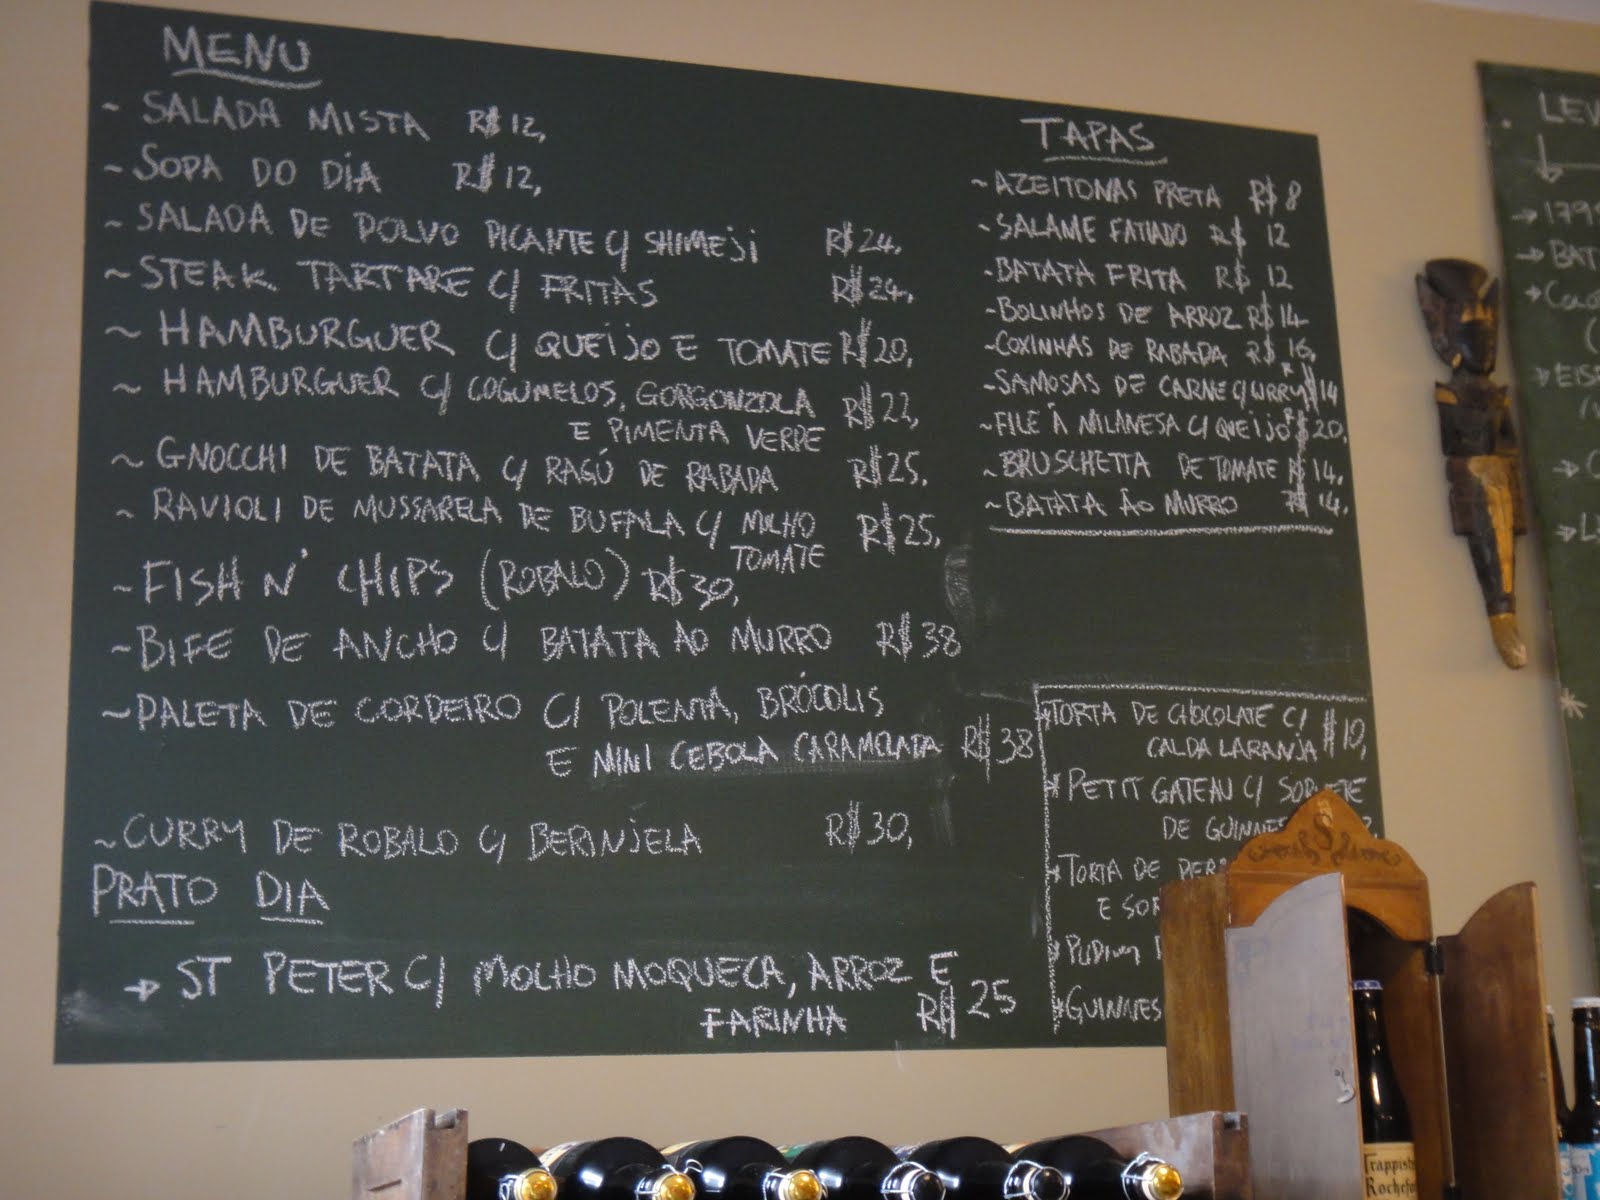 MENU
~ SALADA MISTA R$ 12,
~ SOPA DO DIA R$ 12,
~ SALADA DE POLVO PICANTE C/ SHIMEJI R$ 24,
~ STEAK TARTARE C/ FRITAS R$ 24,
~ HAMBURGUER C/ QUEIJO E TOMATE R$ 20,
~ HAMBURGUER C/ COGUMELOS, GORGONZOLA
E PIMENTA VERDE R$ 22,
~ GNOCCHI DE BATATA C/ RAGÚ DE RABADA R$ 25,
~ RAVIOLI DE MUSSARELA DE BUFALA C/ MOLHO
TOMATE R$ 25,
~ FISH N' CHIPS (ROBALO) R$ 30,
~ BIFE DE ANCHO C/ BATATA AO MURRO R$ 38
~ PALETA DE CORDEIRO C/ POLENTA, BRÓCOLIS
E MINI CEBOLA CARAMELADA R$ 38
~ CURRY DE ROBALO C/ BERINJELA R$ 30,
PRATO DIA
→ ST PETER C/ MOLHO MOQUECA, ARROZ E
FARINHA R$ 25
TAPAS
~ AZEITONAS PRETA R$ 8
~ SALAME FATIADO R$ 12
~ BATATA FRITA R$ 12
~ BOLINHOS DE ARROZ R$ 14
~ COXINHAS DE RABADA R$ 16,
~ SAMOSAS DE CARNE C/ CURRY R$ 14
~ FILÉ À MILANESA C/ QUEIJO R$ 20,
~ BRUSCHETTA DE TOMATE R$ 14,
~ BATATA ÃO MURRO R$ 14,
* TORTA DE CHOCOLATE C/
CALDA LARANJA $ 10,
* PETIT GATEAU C/ SORVETE
DE GUINNES
* TORTA DE
E
* PUDIM
* GUINNES
LEV
→ 1795
→ BAT
Trappist
Rochefo